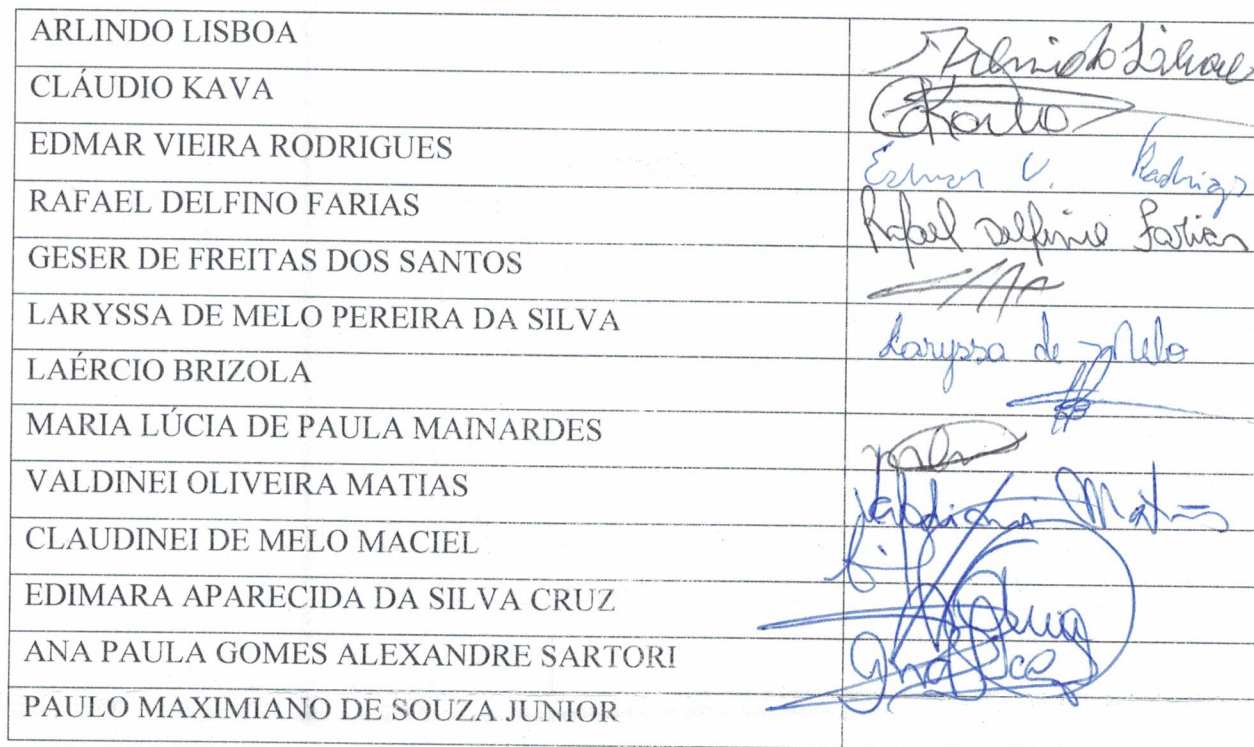 ARLINDO LISBOA
CLÁUDIO KAVA
EDMAR VIEIRA RODRIGUES
Edmar V. Rodrigo
RAFAEL DELFINO FARIAS
Rafael Delfino Farias
GESER DE FREITAS DOS SANTOS
LARYSSA DE MELO PEREIRA DA SILVA
Laryssa de Melo
LAÉRCIO BRIZOLA
MARIA LÚCIA DE PAULA MAINARDES
VALDINEI OLIVEIRA MATIAS
CLAUDINEI DE MELO MACIEL
EDIMARA APARECIDA DA SILVA CRUZ
ANA PAULA GOMES ALEXANDRE SARTORI
PAULO MAXIMIANO DE SOUZA JUNIOR